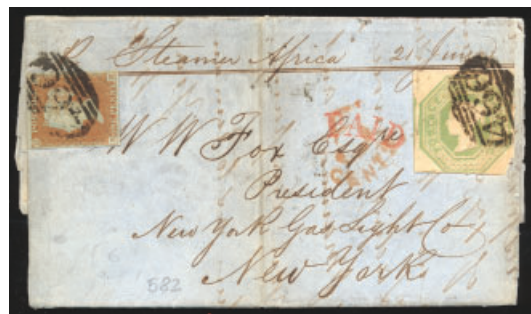 Pr Steamer Africa 21 June
PAID
CENTS
W W Fox Esqre
President
New York Gas Light Co
New York
582
466